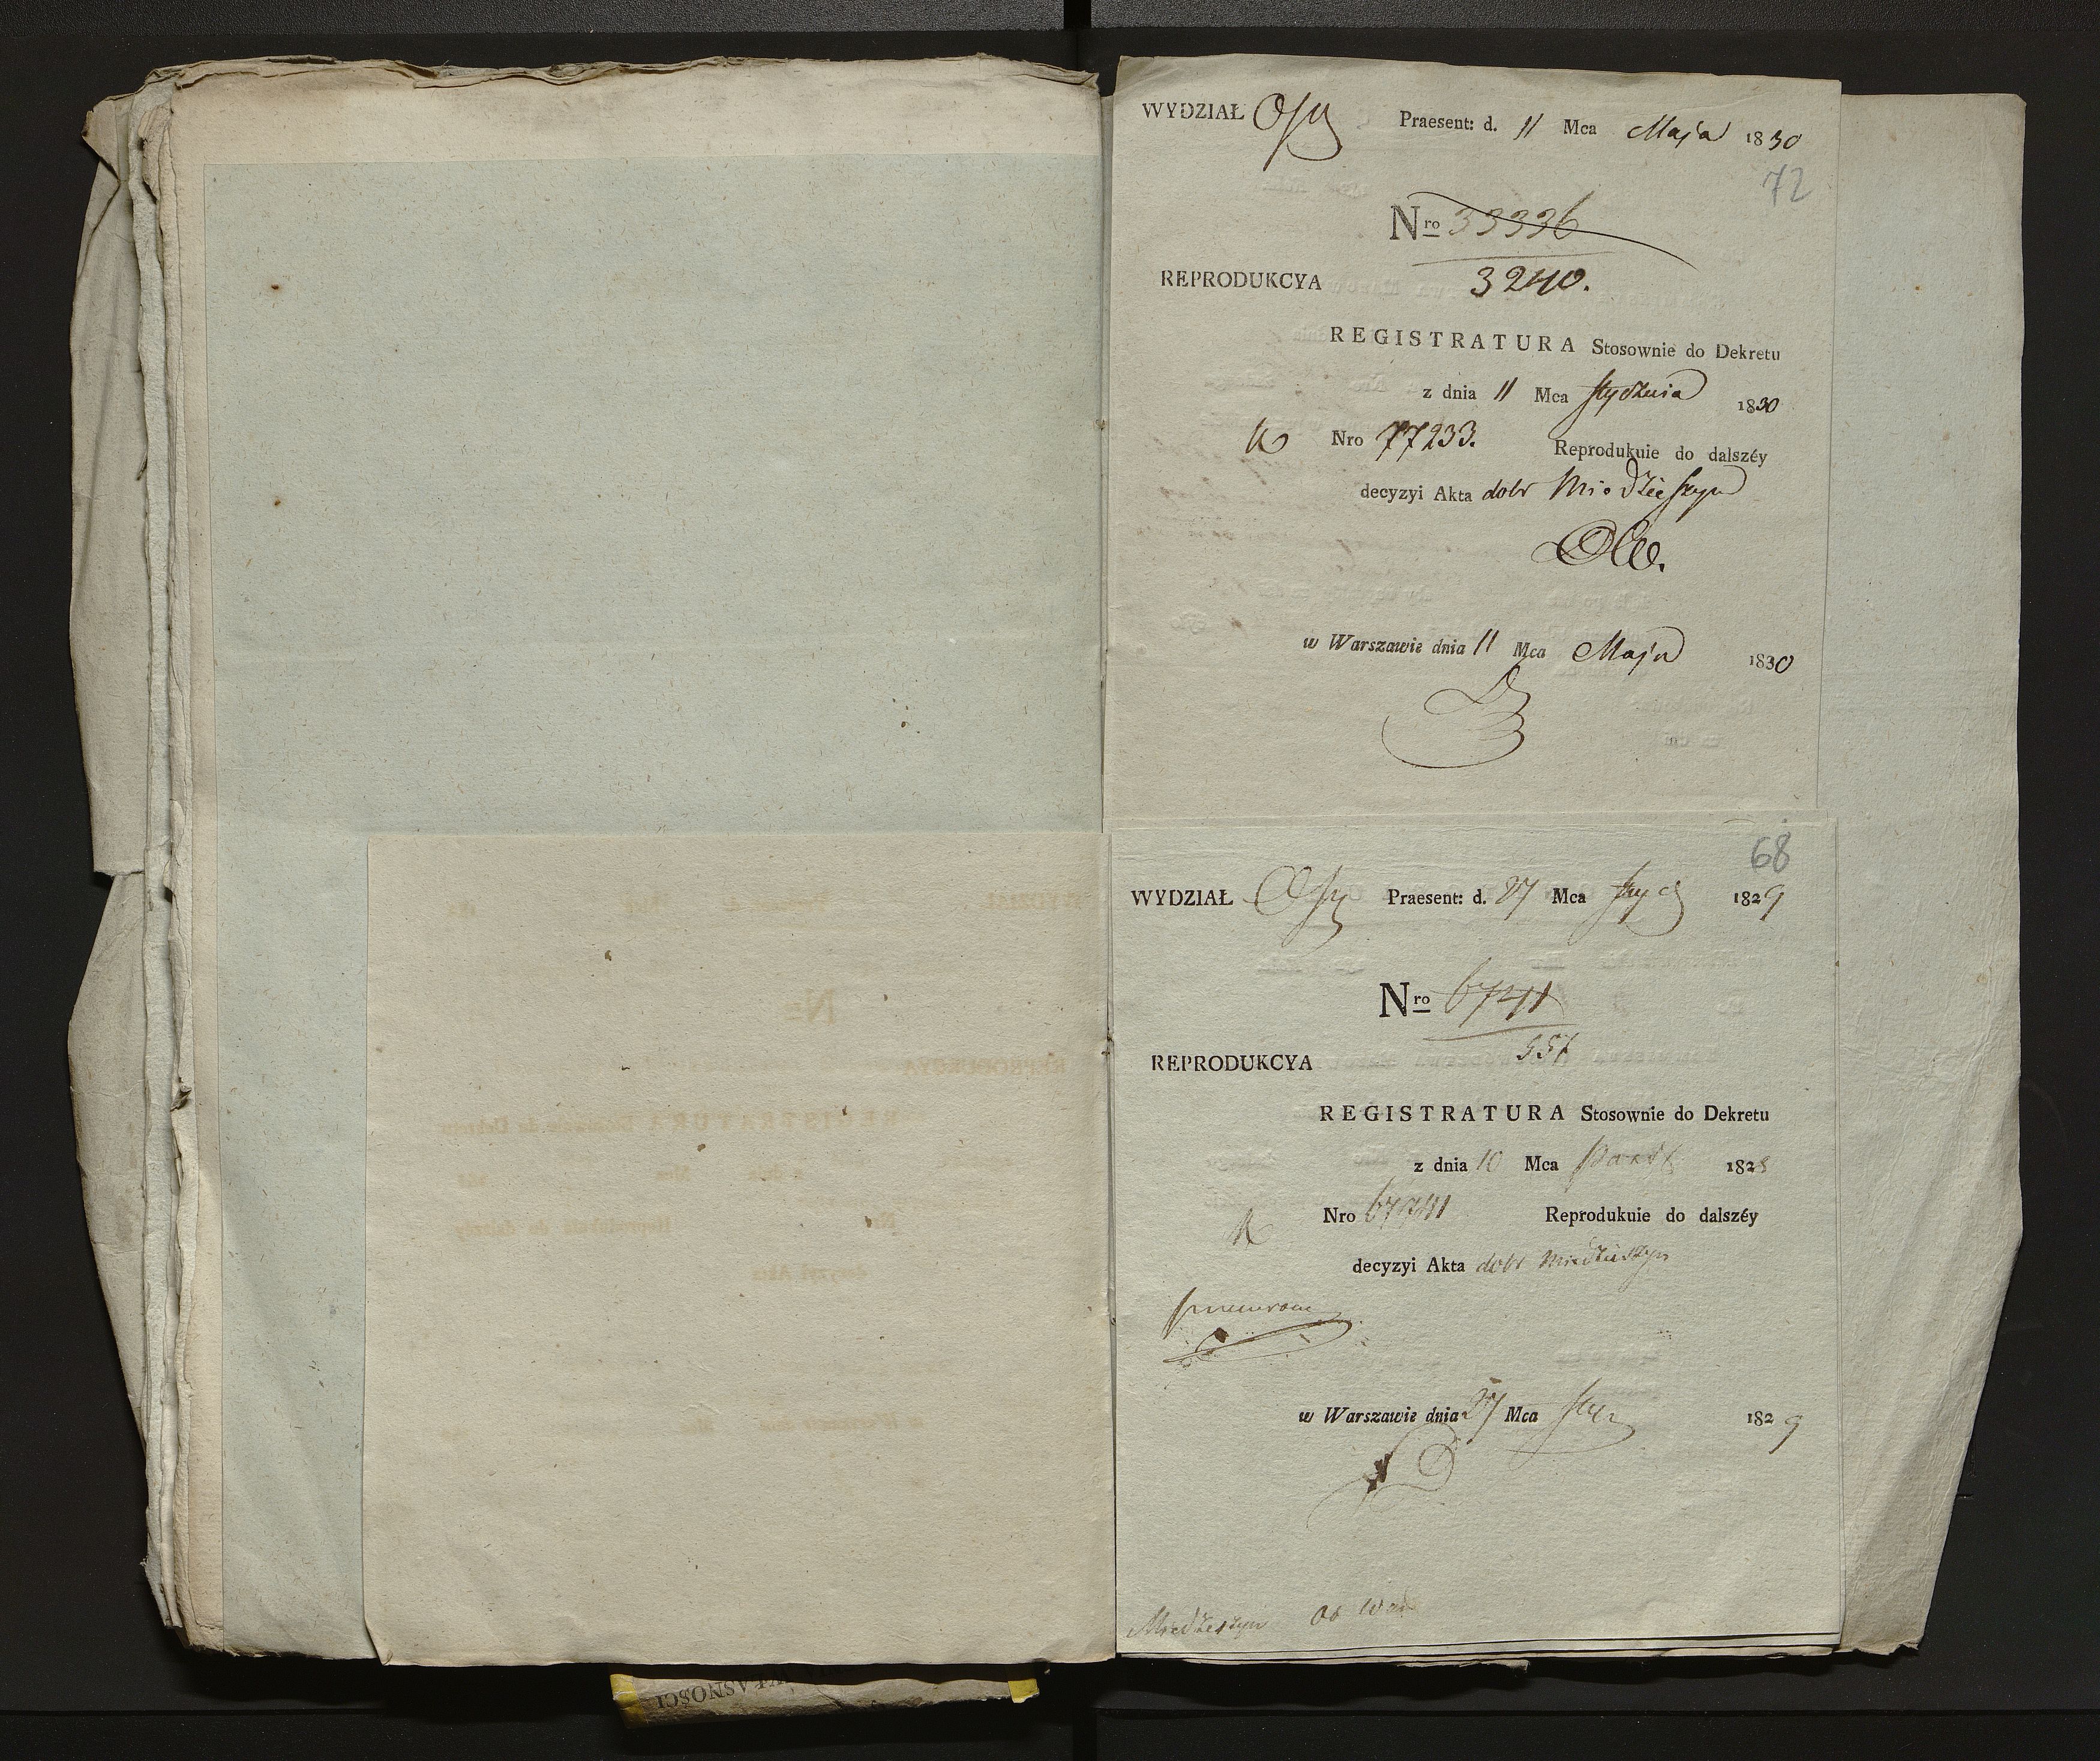 WYDZIAŁ Praesent: d. 11 Mca Maja 1830
72
Nro 33336
3240.
REPRODUKCYA
REGISTRATURA Stosownie do Dekretu
z dnia 11 Mca Stycznia 1830
Nro 77233. Reprodukuie do dalszéy
decyzyi Akta dobr Miedzieszyn
w Warszawie dnia 11 Mca Maja 1830
68
WYDZIAŁ Praesent: d. 27 Mca 1829
Nro 6741
557
REPRODUKCYA
REGISTRATURA Stosownie do Dekretu
z dnia 10 Mca Paźd 1828
Nro 67741 Reprodukuie do dalszéy
decyzyi Akta dobr Miedzieszyn
w Warszawie dnia 27 Mca 1829
Miedzeszyn
WŁASNOŚCI